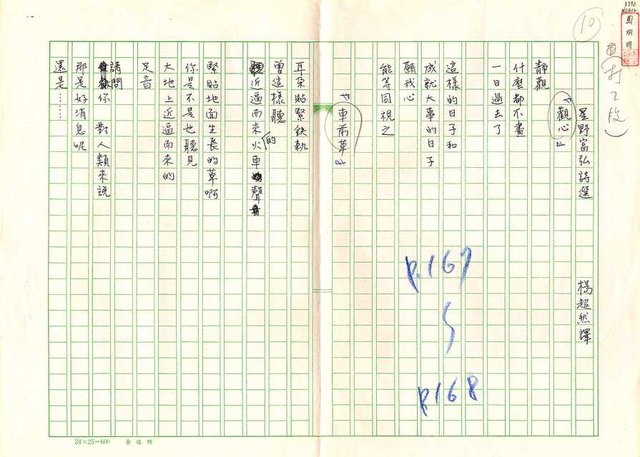 10
星野富弘詩選
楊超然譯
『觀心』
靜觀
什麼都不畫
一日過去了
這樣的日子和
成就大事的日子
願我心
能等同視之
『車前草』
耳朵貼緊鉄軌
曾這樣聽
近逼而來的火車聲
緊貼地面生長的草啊
你是不是也聽見
大地上近逼而來的
足音
請問
你 對人類來說
那是好消息呢
還是……
P.167
P.168
24×25=600